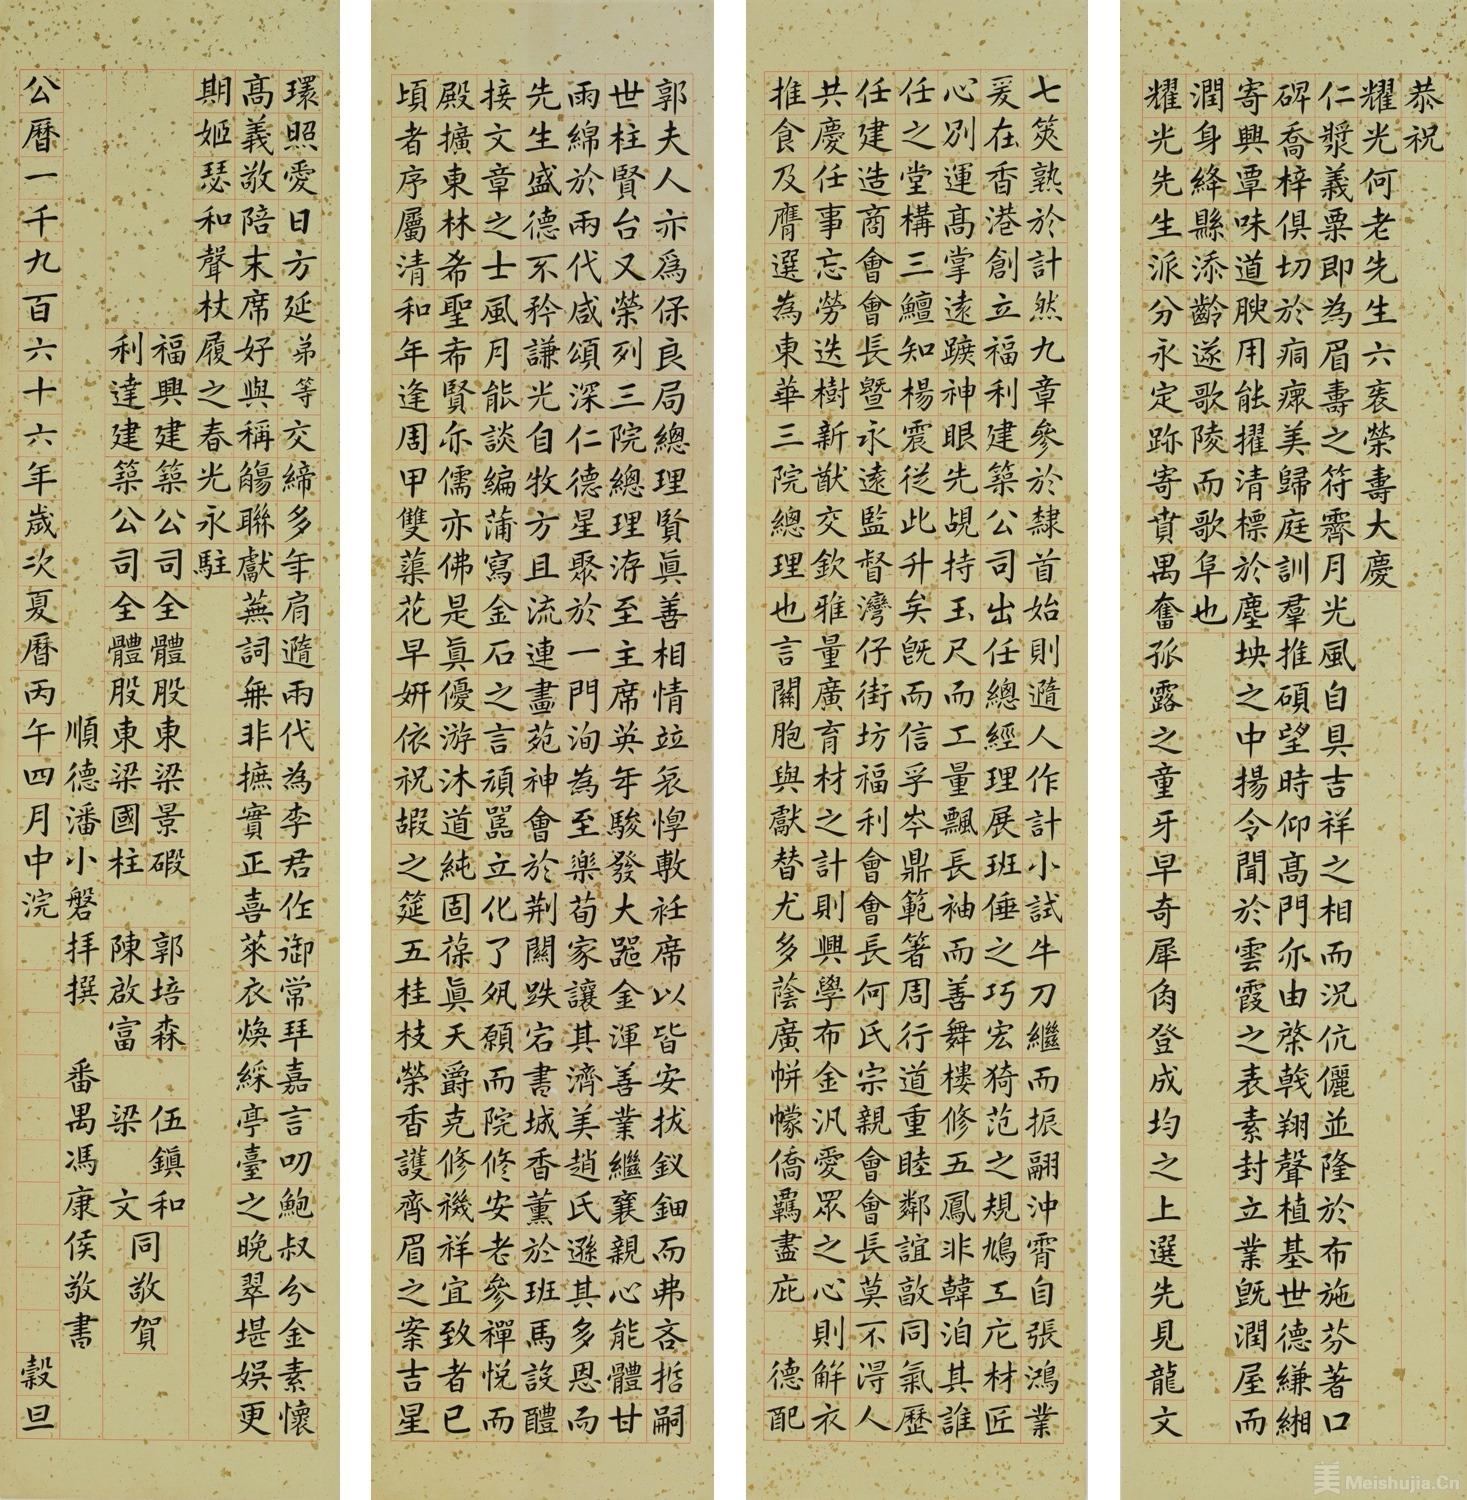 恭祝
耀光何老先生六袠榮壽大慶
仁漿義粟即為眉壽之符霽月光風自具吉祥之相而況伉儷並隆於布施芬著口
碑喬梓俱切於痌瘝美歸庭訓羣推碩望時仰高門亦由棨戟翔聲植基世德縑緗
寄興覃味道腴用能擢清標於塵坱之中揚令聞於雲霞之表素封立業既潤屋而
潤身絳縣添齡遂歌陵而歌阜也
耀光先生派分永定跡寄賁禺奮孤露之童牙早奇犀角登成均之上選先見龍文
七筴熟於計然九章參於隸首始則遒人作計小試牛刀繼而振翮沖霄自張鴻業
爰在香港創立福利建築公司出任總經理展班倕之巧宏猗范之規鳩工庀材匠
心別運高掌遠蹠神眼先覘持玉尺而工量飄長袖而善舞樓修五鳳非韓洎其誰
任之堂構三鱣知楊震從此升矣既而信孚岑鼎範箸周行道重睦鄰誼敵同氣歷
任建造商會會長暨永遠監督灣仔街坊福利會會長何氏宗親會會長莫不淂人
共慶任事忘勞迭樹新猷交欽雅量廣育材之計則興學布金汎愛眾之心則解衣
推食及膺選為東華三院總理也言關胞與獻替尤多蔭廣帡幪僑羈盡庇 德配
郭夫人亦為保良局總理賢真善相情竝哀惸敷衽席以皆安拔釵鈿而弗吝哲嗣
世柱賢台又榮列三院總理洊至主席英年駿發大器金渾善業繼襄親心能體甘
雨綿於兩代咸頌深仁德星聚於一門洵為至樂荀家讓其濟美趙氏遜其多恩而
先生盛德不矜謙光自牧方且流連畫苑神會於荆關跌宕書城香薰於班馬設醴
接文章之士風月能談編蒲寫金石之言頑嚚立化了夙願而院修安老參禪悅而
殿擴東林希聖希賢亦儒亦佛是真優游沐道純固葆真天爵克修禨祥宜致者已
頃者序屬清和年逢周甲雙蕖花早妍依祝嘏之筵五桂枝榮香護齊眉之案吉星
環照愛日方延弟等交締多年肩隨兩代為李君作御常珥嘉言叨鮑叔分金素懷
高義敬陪末席好與稱觴聯獻蕪詞無非摭實正喜萊衣煥綵亭臺之晚翠堪娛更
期姬瑟和聲杖履之春光永駐
福興建築公司全體股東梁景碬 郭培森 伍鎮和
利達建築公司全體股東梁國柱 陳啟富 梁 文
同敬賀
順德潘小磐拜撰 番禺馮康侯敬書
公曆一千九百六十六年歲次夏曆丙午四月中浣 穀旦
美 Meishujia.Cn